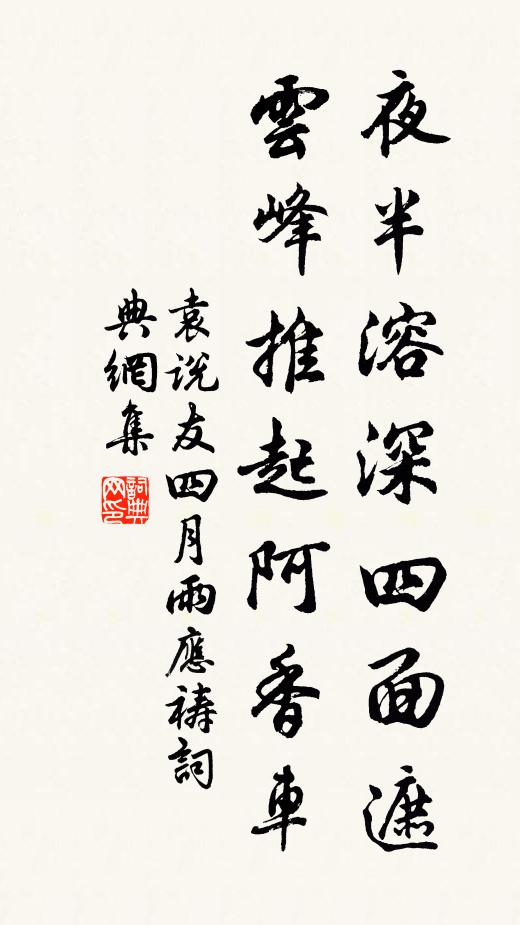 夜半溶深四面遮
雲峰推起阿香車
袁説友四月雨應禱詞
典網集
詞典
网印